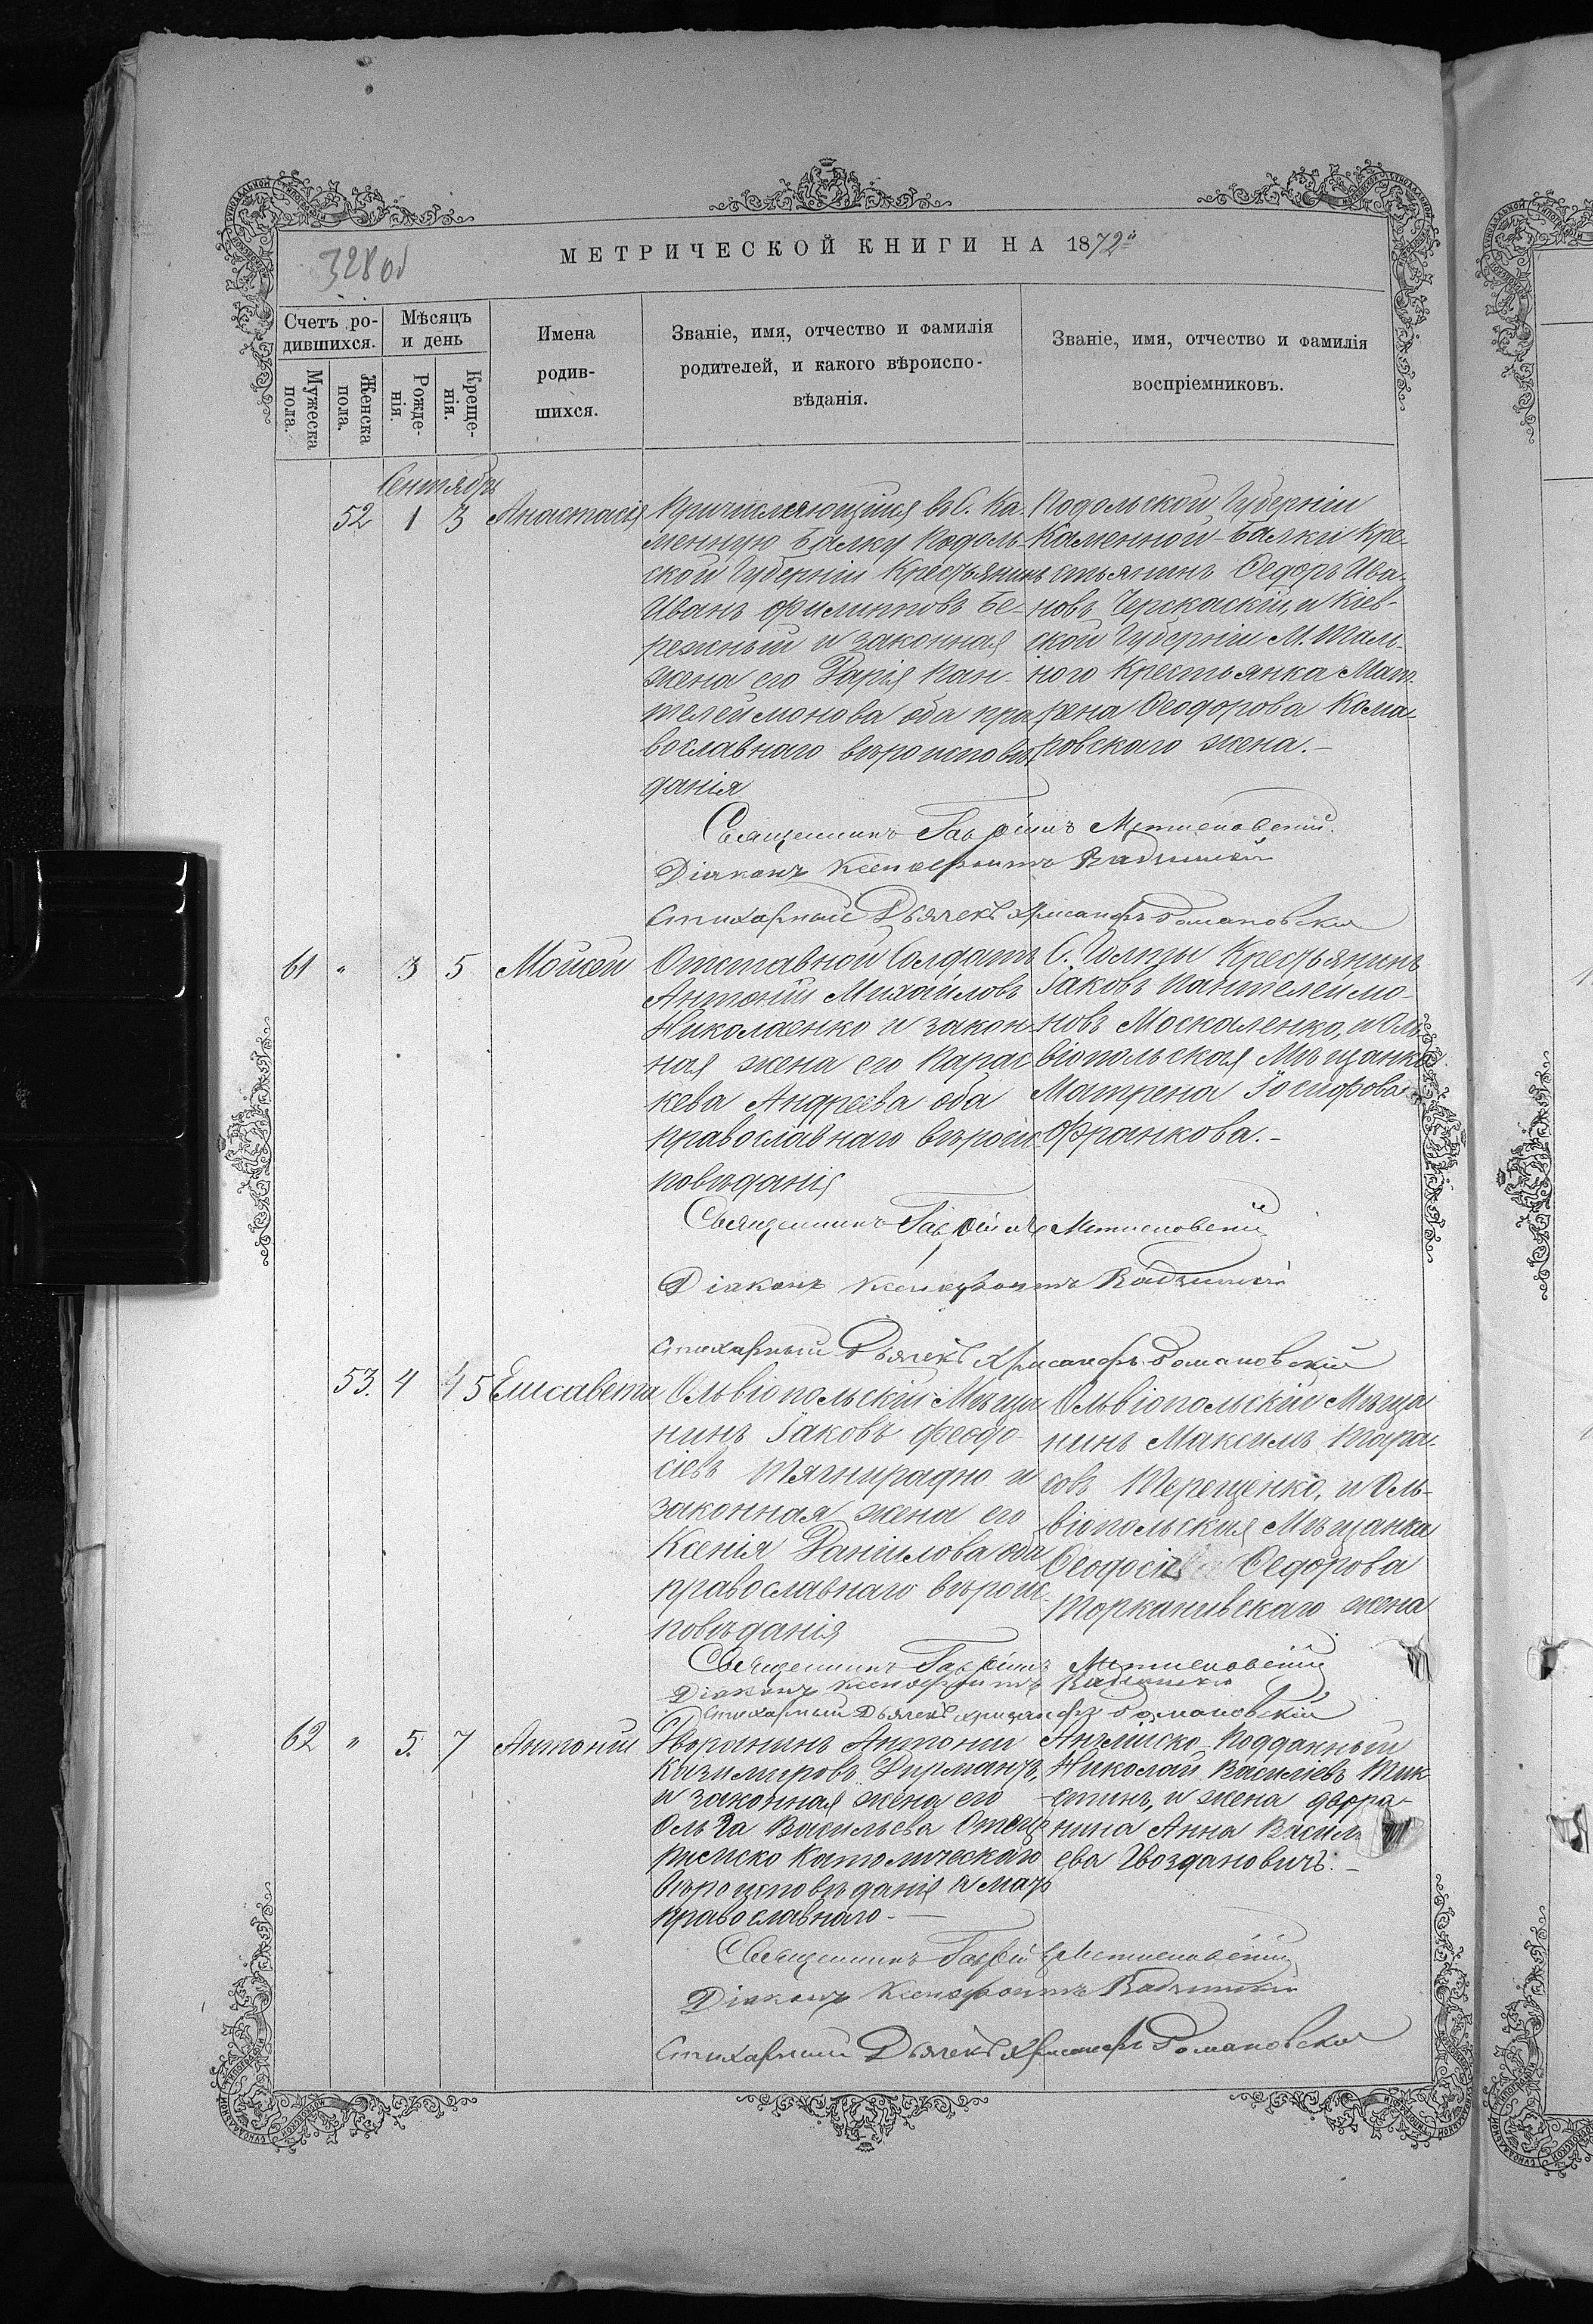 328 об
МЕТРИЧЕСКОЙ КНИГИ НА 1872й
Счетъ ро-
дившихся.
Мужеска
пола.
Женска
пола.
Мѣсяцъ
и день
Рожде-
нія.
Креще-
нія.
Имена
родив-
шихся.
Званіе, имя, отчество и фамилія
родителей, и какого вѣроиспо-
вѣданія.
Званіе, имя, отчество и фамилія
воспріемниковъ.
Сентябрь
52 1 3 Анастасія
Причисляющійся въ С. Ка-
менную Балку Подоль-
ской Губерніи Крестьянинъ
Иванъ Филипповъ Бе-
режный и законная
жена его Дарія Пан-
телеймонова оба пра-
вославнаго вѣроисповѣ-
данія
Подольской Губерніи
Каменной-Балки Кре-
стьянинъ Ѳедоръ Ива-
новъ Черскаскій, и Кіев-
ской Губерніи М. Таль-
ного Крестьянка Мат-
рена Ѳеодорова Кома-
ровскаго жена.-
Священникъ Гавріилъ
Діаконъ Ксенофонтъ
Стихарный Дьячекъ Хрисанфъ Романовскій
61 " 3 5 Моисей
Отставной Солдатъ
Антоній Михайловъ
Николаенко и закон-
ная жена его Парас
кева Андреева оба
православнаго вѣроис-
повѣданія
С. Голты Крестьянинъ
Іаковъ Пантелеймо-
новъ Москаленко, и Оль-
віопольская Мѣщанка
Матрена Іосифова
Франкова.-
Священникъ Гавріилъ
Діаконъ Ксенофонтъ
Стихарный Дьячекъ Хрисанфъ Романовскій
53. 4 5 Елисавета
Ольвіопольскій Мѣща
нинъ Іаковъ Феодо-
сіевъ Тягнирядно и
законная жена его
Ксенія Даніилова оба
православнаго вѣроис-
повѣданія
Ольвіопольскій Мѣща
нинъ Максимъ Тара-
совъ Терещенко, и Оль-
віопольская Мѣщанка
Ѳеодосія Ѳедорова
жена
Священникъ Гавріилъ
Діаконъ Ксенофонтъ
Стихарный Дьячекъ Хрисанфъ Романовскій
62 " 5. 7 Антоній
Дворянинъ Антоній
Казимировъ Дирмантъ,
и законная жена его
Ольга Васильева Отецъ
римско Католическаго
Вѣроисповѣданія а мать
православнаго.-
Англійско-Подданный
Николай Василіевъ
стинъ, и жена дворя-
нина Анна Василь
ева Гвоздановичъ.-
Священникъ Гавріилъ
Діаконъ Ксенофонтъ
Стихарный Дьячекъ Хрисанфъ Романовскій